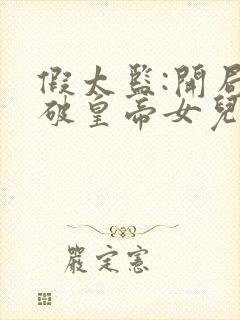 假太監:開局
破皇帝女兒
嚴定憲